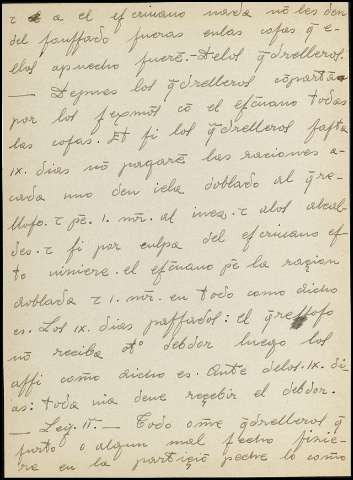 τ a el escriuano nada nõ les den
del sansfado fueras enlas cosas q̃ e-
llos apuecho fuerẽ.- Delos q̃drelleros.
— Depues los q̃drelleros cõpartã
por los sexmos cõ el esc̃uano todas
las cosas. Et si los q̃drelleros fasta
.ix. dias nõ pagarẽ las raciones a-
cada uno den iela doblada al q̃re-
lloso. τ pẽ. 1. mr̃. al iuez. τ alos alcal-
des. τ si por culpa del escriuano es-
to uiniere. el esc̃uano pẽ la razion
doblada τ 1. mr̃. en todo como dicho
es. Los ix. dias passados: el q̃relloso
nõ reciba otº debdor luego los
assi como dicho es. Ante delos .ix. di-
as: toda uia deue reçebir el debdor.
— Ley. II — Todo ome q̃drelleros q̃
furto o algun mal fecho fizie-
re en la partiçiõ peche lo como